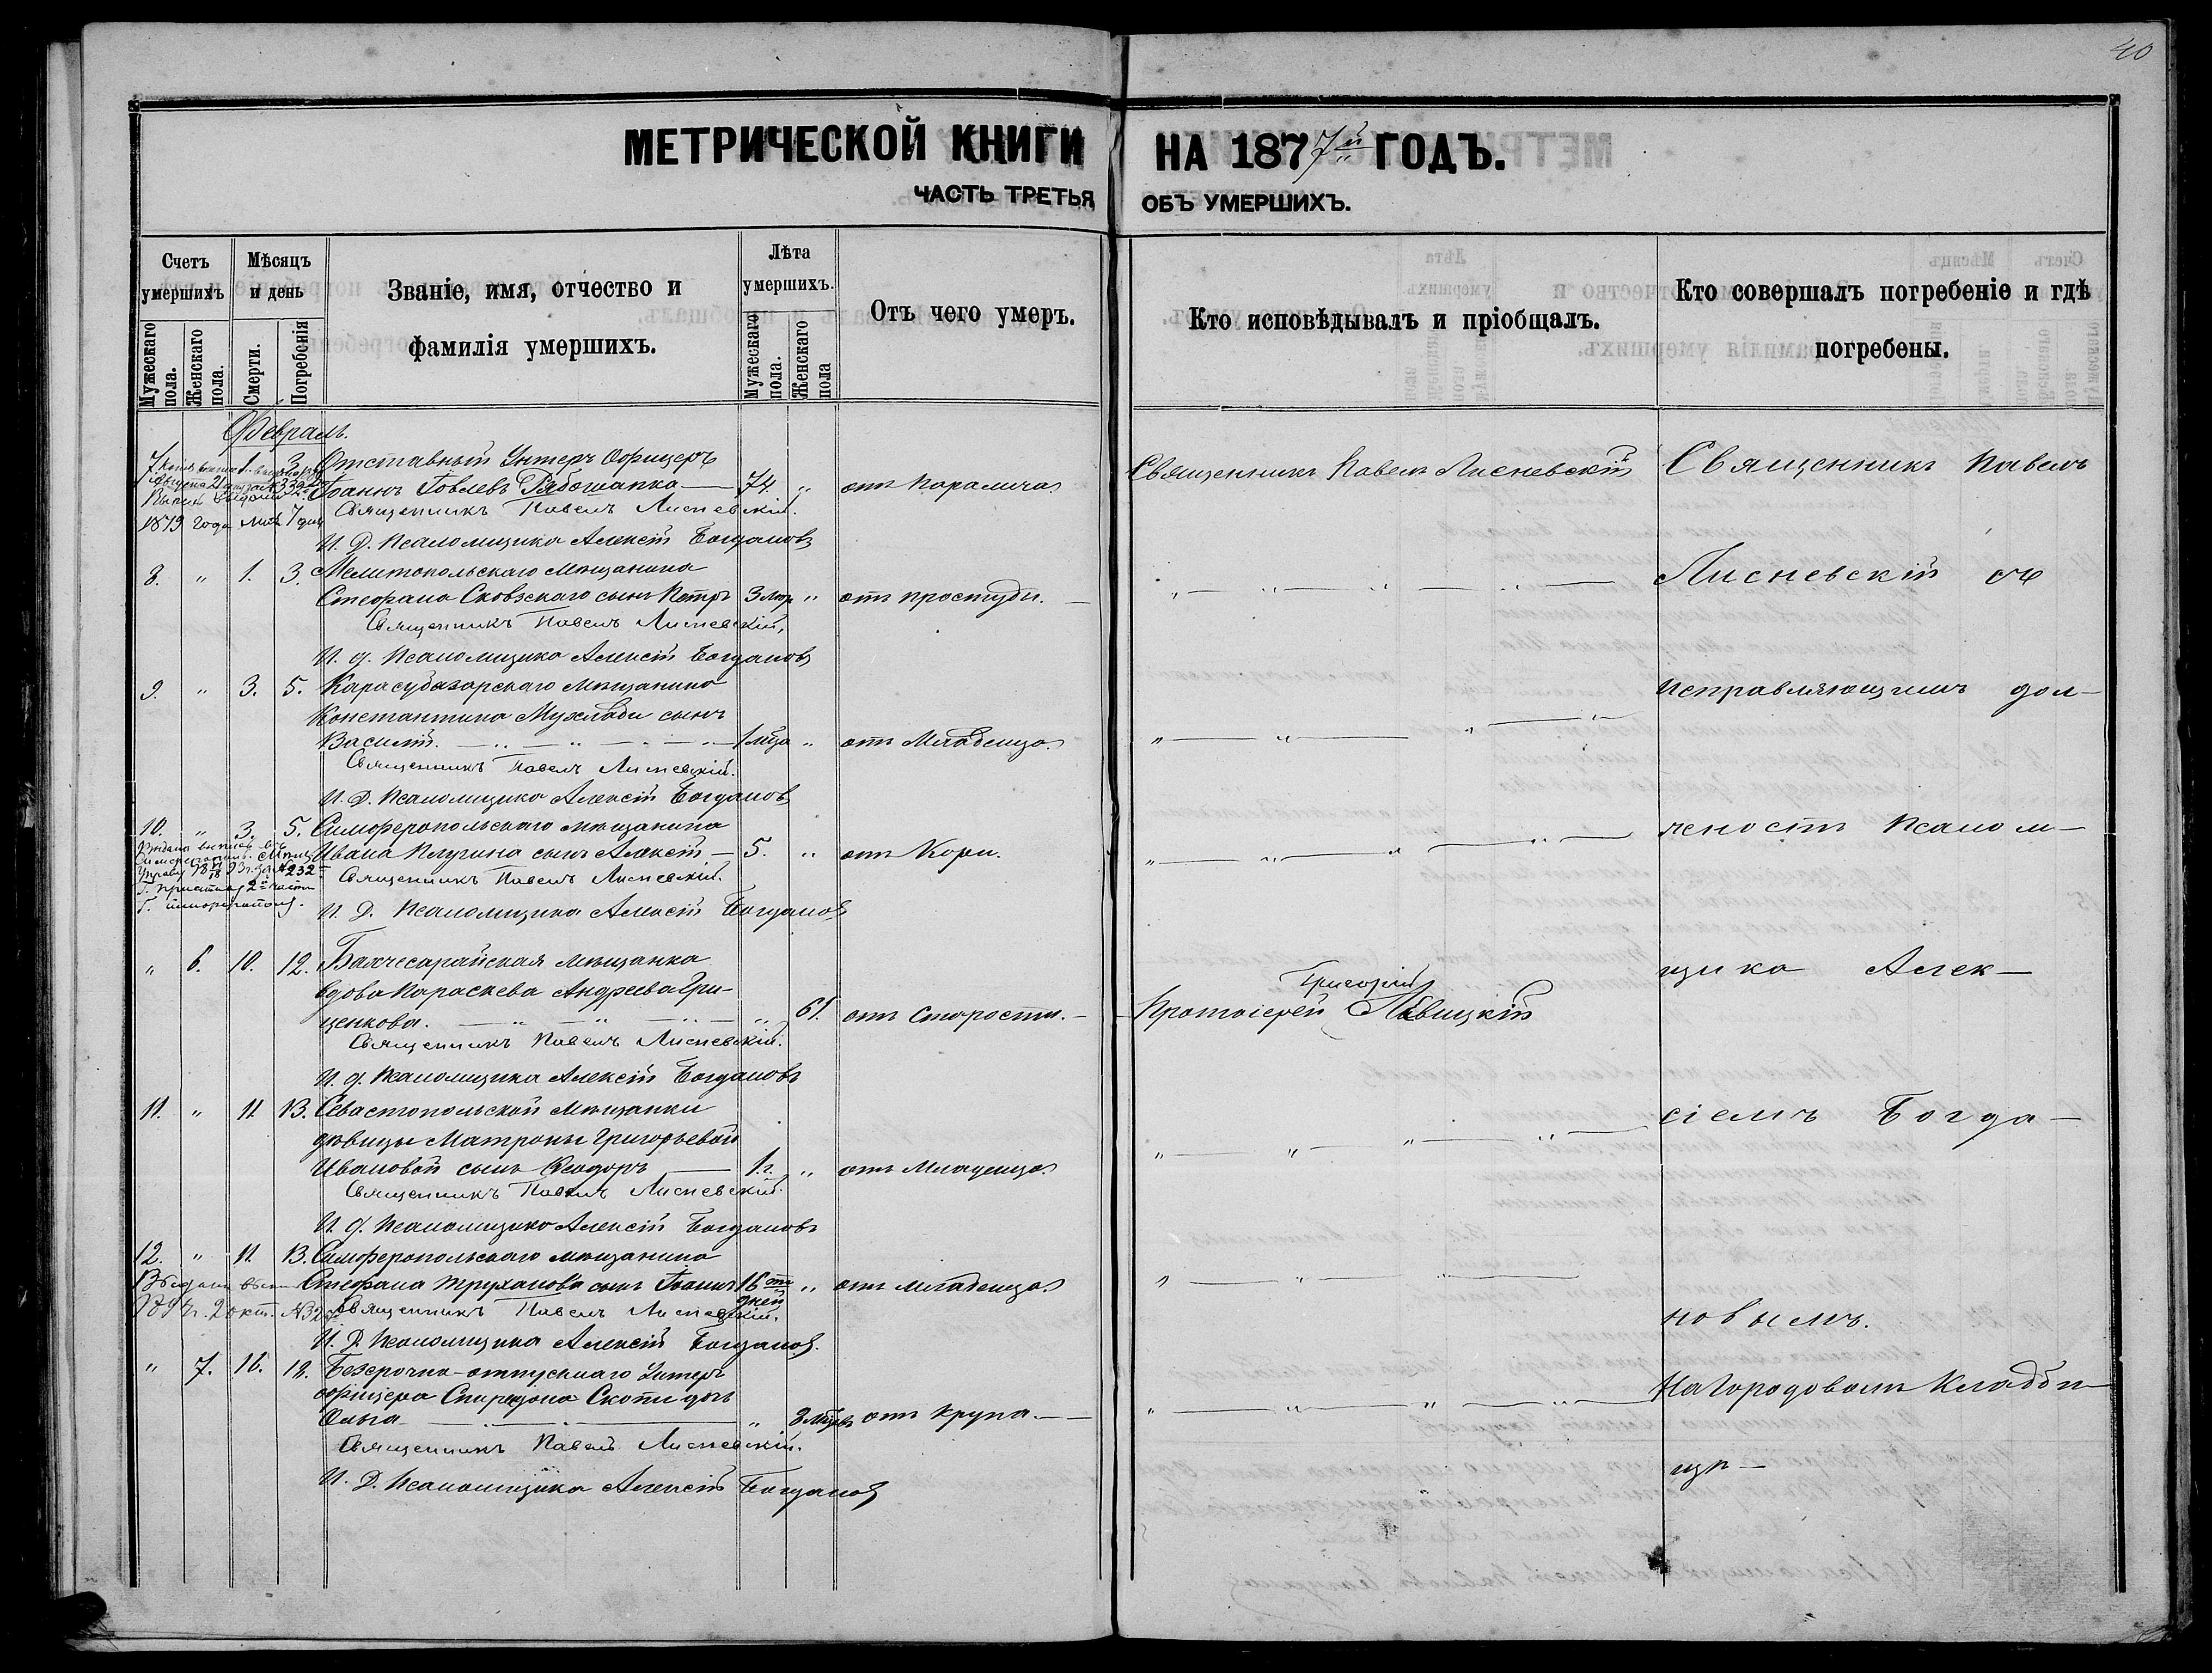 40
МЕТРИЧЕСКОЙ КНИГИ НА 1877й ГОДЪ.
ЧАСТЬ ТРЕТЬЯ ОБЪ УМЕРШИХЪ.
Счетъ умершихъ
Мужескаго пола.
Женскаго пола.
Мѣсяцъ и день
Смерти.
Погребенія
Званіе, имя, отчество и фамилія умершихъ.
Лѣта умершихъ.
Мужескаго пола.
Женскаго пола
Отъ чего умеръ.
Кто исповѣдывалъ и пріобщалъ.
Кто совершалъ погребеніе и гдѣ погребены.
Февраль.
7 1. 3 Отставный Унтеръ Офицеръ
Іоаннъ Іовлевъ Рябошапка — 74. „ отъ Паралича
Священникъ Павелъ Лисневскій Священникъ Павелъ
Священникъ Павелъ Лисневскій.
1879 года 7 дня
И. Д. Псаломщика Алексѣй Богдановъ
8. „ 1. 3. Мелитопольскаго мѣщанина
Стефана Сковзскаго сынъ Петръ 3 „ отъ простуды. —
Лисневскій съ
Священникъ Павелъ Лисневскій,
И. д. Псаломщика Алексѣй Богдановъ
9. „ 3. 5. Карасубазарскаго мѣщанина
Исправляющимъ дол—
Константина сынъ
Василій. — 1 мѣца „ отъ Младенца
Священникъ Павелъ Лисневскій.
И. Д. Псаломщика Алексѣй Богдановъ
10. „ 3. 5. Симферопольскаго мѣщанина
жность Псалом—
Ивана Плугина сынъ Алексѣй — 5. „ отъ Кори.
№ 232
Священникъ Павелъ Лисневскій.
И. Д. Псаломщика Алексѣй Богдановъ
„ 6. 10. 12. Бахчесарайская мѣщанка
щика Алек—
вдова Параскева Андреева Гри-
щенкова. — „ 61. отъ Старости. —
Протоіерей Григорій Левицкій
Священникъ Павелъ Лисневскій.
И. д. Псаломщика Алексѣй Богдановъ
11. „ 11. 13. Севастопольской мѣщанки
сіемъ Богда—
дѣвицы Матроны Григорьевой
Ивановой сынъ Ѳеодоръ — 1 г. „ отъ Младенца
Священникъ Павелъ Лисневскій.
И. д. Псаломщика Алексѣй Богдановъ
12. „ 11. 13. Симферопольскаго мѣщанина
Стефана Труханова сынъ Іоаннъ 16 ти дней „ отъ младенца
Священникъ Павелъ Лисневскій.
новымъ.
И. Д. Псаломщика Алексѣй Богдановъ.
„ 7. 16. 18. Безсрочно-отпускнаго Унтеръ
офицера Спиридона Скоти дочь
На Городовомъ Кладби—
Ольга — „ 3 мѣцевъ отъ крупа. —
Священникъ Павелъ Лисневскій.
щѣ —
И. Д. Псаломщика Алексѣй Богдановъ